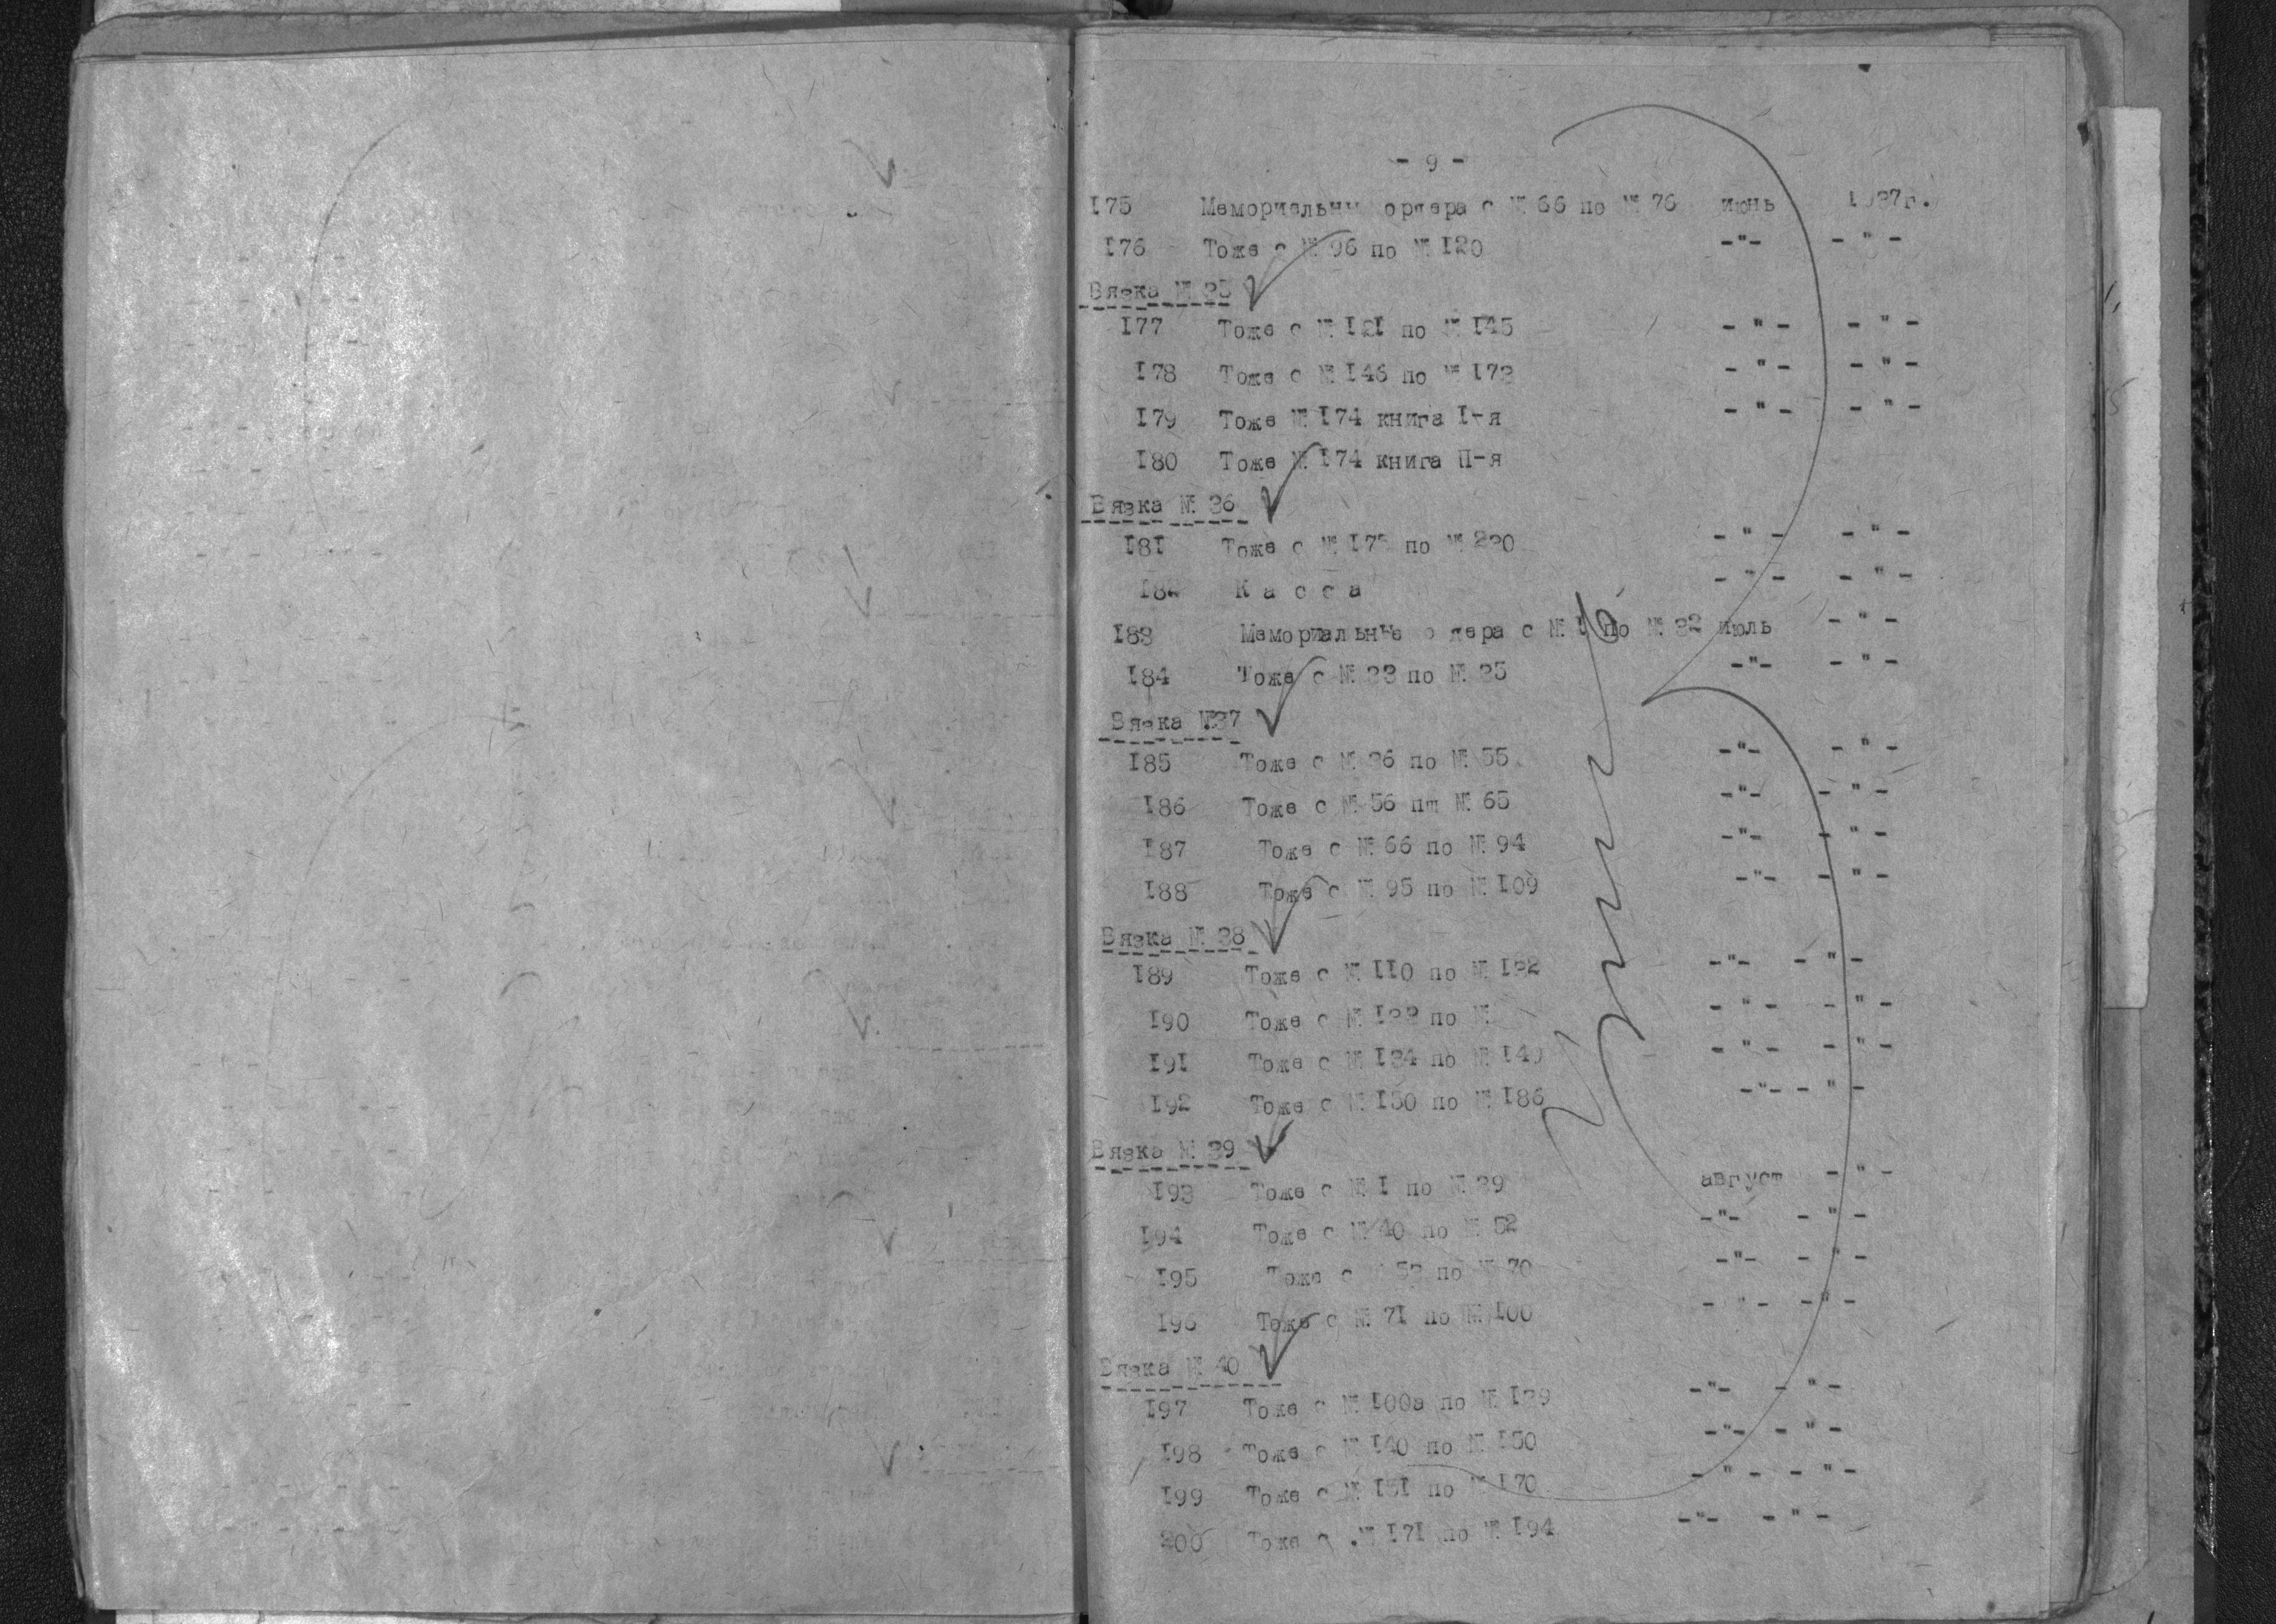 - 9 -
175 Мемориальны ордера с № 66 по № 76 июнь 1937г.
176 Тоже с № 96 по № 120 -"- - " -
Вязка № 35
177 Тоже с № 121 по № 145 - " - - " -
178 Тоже с № 146 по № 173 - " - - " -
179 Тоже № 174 книга I-я - " - - " -
180 Тоже № 174 книга П-я
Вязка № 36
181 Тоже с № по № - " - - " -
182 К а с с а - " - - " -
183 Мемориальные ордера с № 1 по № 32 июль - " -
184 Тоже с № 33 по № 35 -"- - " -
Вязка №37
185 Тоже с № 36 по № 55 -"- - " -
186 Тоже с № 56 пш № 65 -"- - " -
187 Тоже с № 66 по № 94 -"- - " -
188 Тоже с № 95 по № 109 -"- - " -
Вязка № 38
189 Тоже с № 110 по № 132 -"- - " -
190 Тоже с № 133 по № - " - - " -
191 Тоже с № 134 по № 149 - " - - " -
192 Тоже с № 150 по № 186 -"- - " -
Вязка № 39
193 Тоже с № 1 по № 39 август - " -
194 Тоже с № 40 по № 52 -"- - " -
195 Тоже с № 53 по № 70 -"- - " -
196 Тоже с № 71 по № 100 - " - -"-
Вязка № 40
197 Тоже с № 100а по № 139 -"- - " -
198 Тоже с № 140 по № 150 -"- - " -
199 Тоже с № 151 по № 170 - " - - " -
200 Тоже с № 171 по № 194 -"- - " -